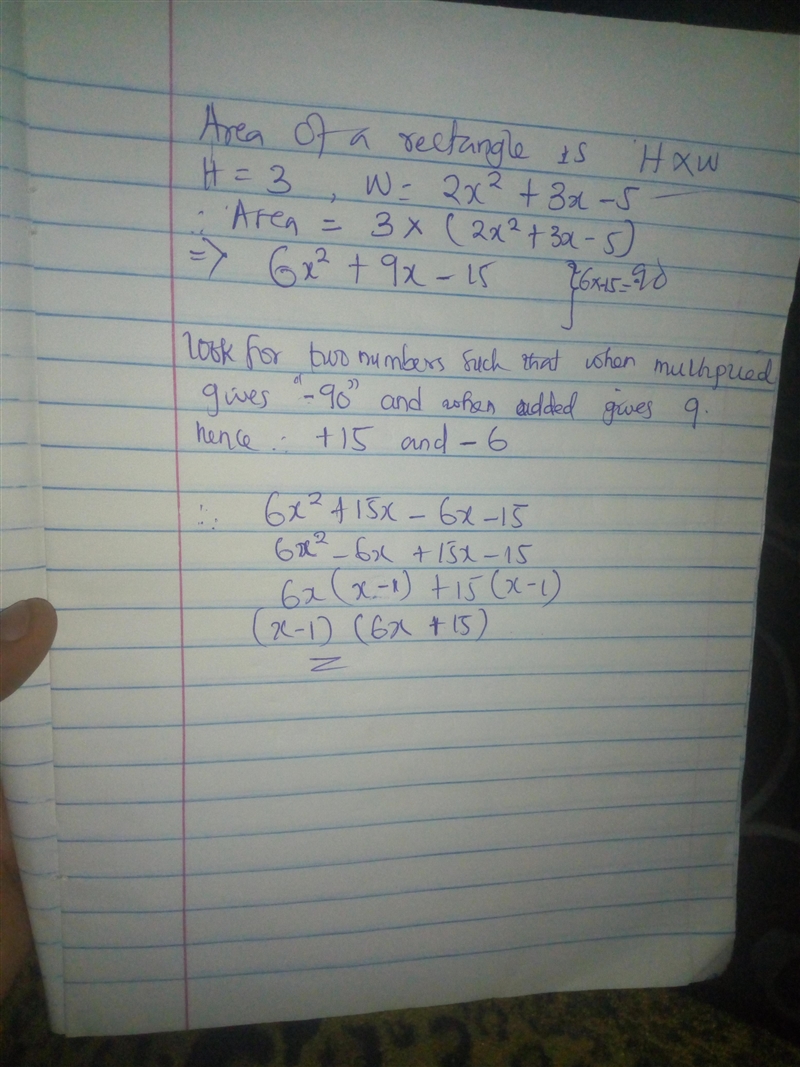 Area Of a rectangle is H×W
H = 3 , W = 2x² + 3x - 5
∴ Area = 3 × (2x² + 3x - 5)
=> 6x² + 9x - 15 }6x-15=-90
look for two numbers such that when multiplied
gives "-90" and when added gives 9.
hence ∴ +15 and -6
∴ 6x² + 15x - 6x - 15
6x² - 6x + 15x - 15
6x(x-1) + 15(x-1)
(x-1) (6x + 15)